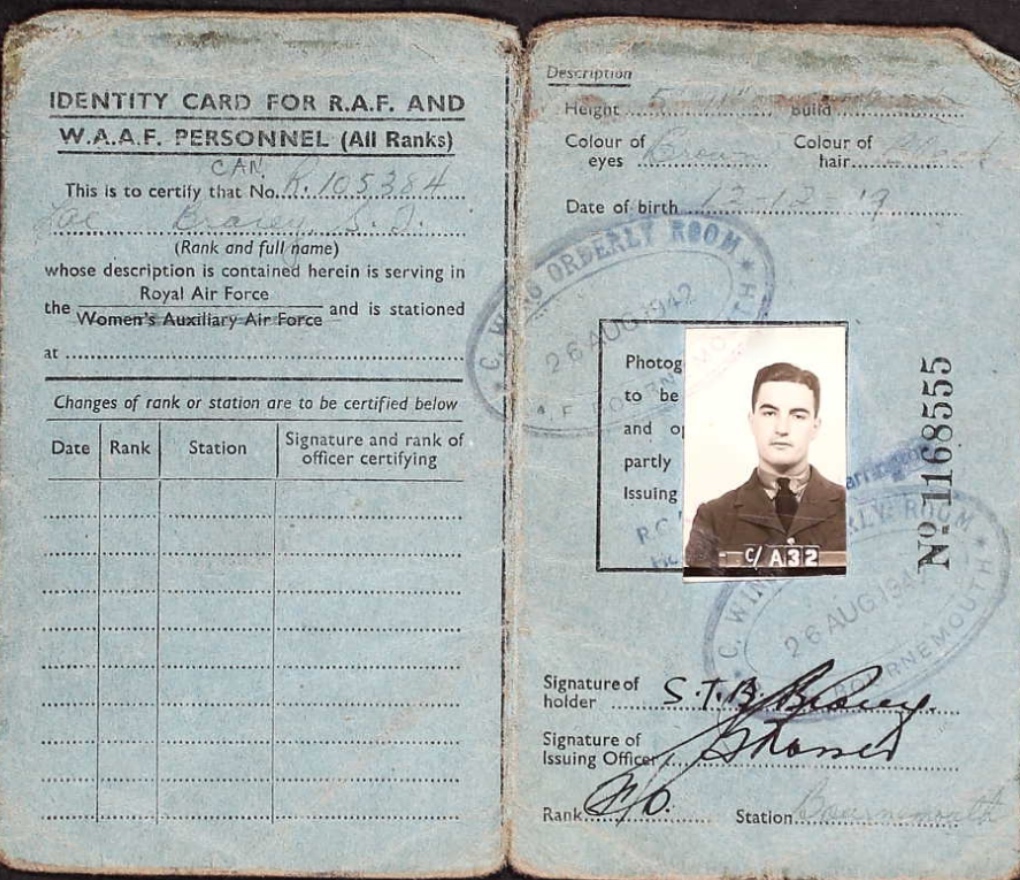 IDENTITY CARD FOR R.A.F. AND
W.A.A.F. PERSONNEL (All Ranks)
CAN.
This is to certify that No. R.105384
Bracey S. T.
(Rank and full name)
whose description is contained herein is serving in
Royal Air Force
the and is stationed
Women's Auxiliary Air Force
at
Changes of rank or station are to be certified below
Date Rank Station Signature and rank of
officer certifying
Description
Height 5' 11" Build
Colour of eyes Brown Colour of hair
Date of birth 12-12-'19
C. WING ORDERLY ROOM
26 AUG 1942
BOURNEMOUTH
Photog
to be
and op
partly
Issuing
C/A32
No 1168555
C. WING ORDERLY ROOM
26 AUG 194
BOURNEMOUTH
Signature of holder S.T.B. Bracey.
Signature of
Issuing Officer
Rank F/O. Station Bournemouth